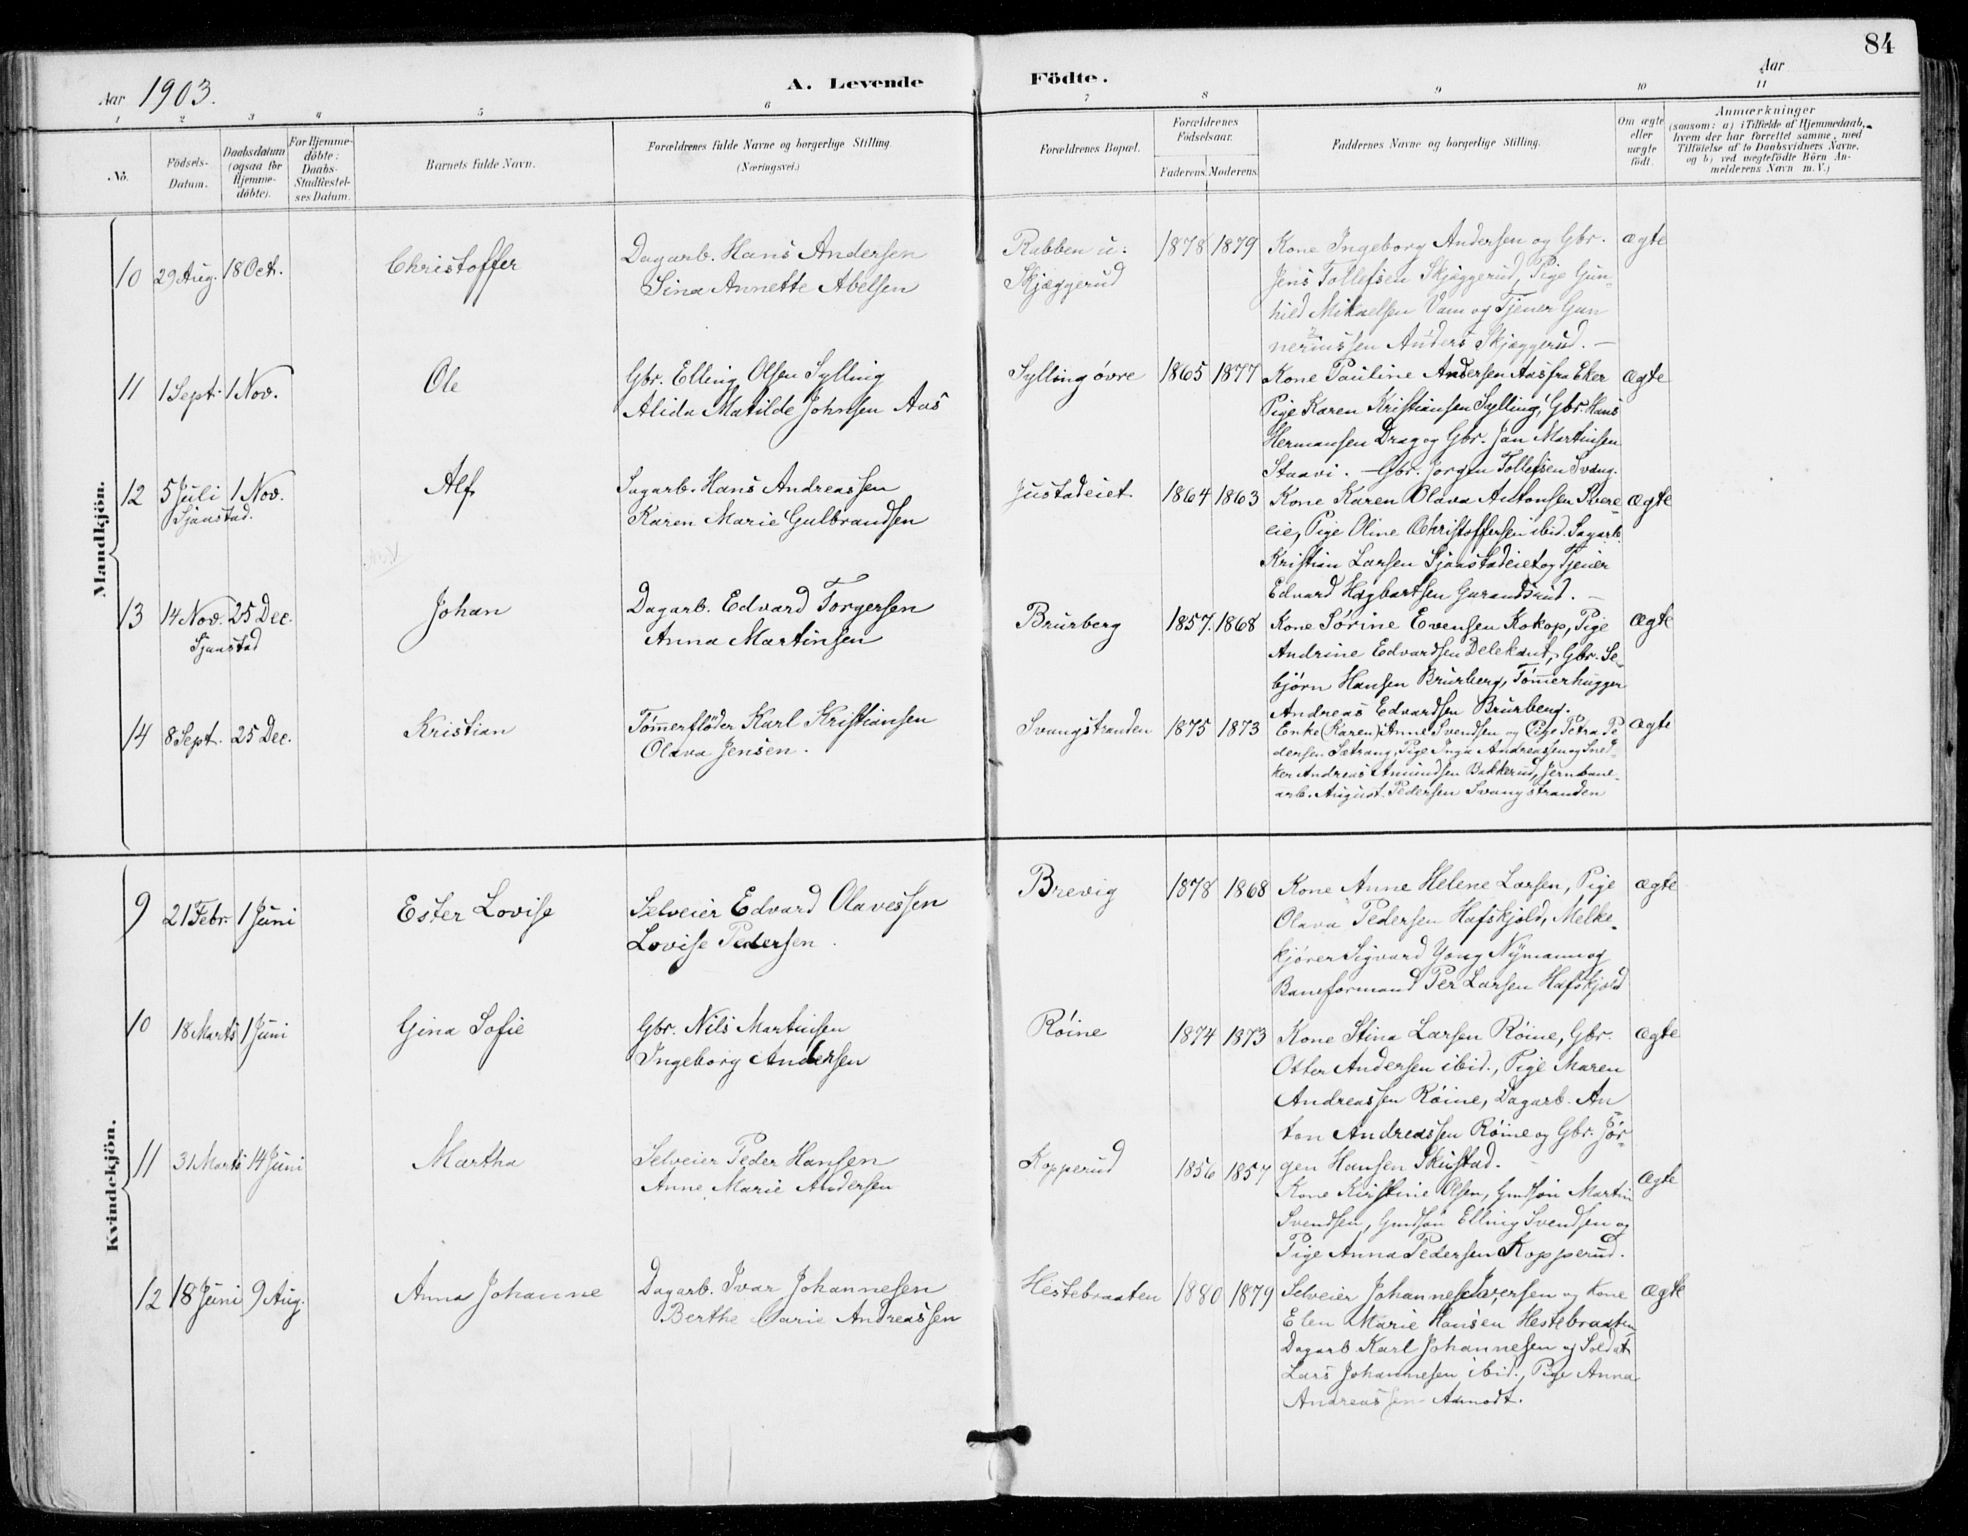 84
Aar 1903.
A. Levende Födte.
Aar
1 2 3 4 5 6 7 8 9 10 11
No.
Födsels-Datum.
Daabsdatum (ogsaa for Hjemme-döbte).
For Hjemme-döbte: Daabs-Stadfæstel-ses Datum.
Barnets fulde Navn.
Forældrenes fulde Navne og borgerlige Stilling.
(Næringsvei.)
Forældrenes Bopæl.
Forældrenes Födselsaar.
Faderens. Moderens.
Faddernes Navne og borgerlige Stilling.
Om ægte eller uægte födt.
Anmærkninger
(saasom: a) i Tilfælde af Hjemmedaab,
hvem der har forrettet samme, med
Tilföielse af to Daabsvidners Navne,
og b) ved uægtefödte Börn An-
melderens Navn m. V.)
Mandkjön.
10 29 Aug. 18 Oct. Christoffer
Dagarb. Hans Andersen
Sina Annette Abelsen
Rabben u:
Skjæggerud
1878 1879
Kone Ingeborg Andersen og Gbr.
Jens Tollefsen Skjæggerud, Pige Gun-
hild Mikaelsen Vam og Tjener Gun
neriussen Anders Skjæggerud. —
ægte
11 1 Sept. 1 Nov. Ole
Gbr. Elling Olsen Sylling
Alida Matilde Johnsen Aas
Sylling øvre
1865 1877
Kone Pauline Andersen Aas fra Eker
Pige Karen Kristiansen Sylling, Gbr. Hans
Hermansen Drag og Gbr. Jan Martinsen
Staavi. — Gbr. Jorgen Tollefsen Svang.
ægte
12 5 Juli 1 Nov. Alf
Sjaastad.
Sagarb. Hans Andreassen
Karen Marie Gulbrandsen
Justadeiet
1864 1863
Kone Karen Olava Antonsen
eie, Pige Oline Christoffersen ibid. Sagarb.
Kristian Larsen Sjaastadeiet og Tjener
Edvard Hagbartsen Gurandsrud. —
ægte
13 14 Nov. 25 Dec. Johan
Sjaastad
Dagarb. Edvard Torgersen
Anna Martinsen
Brurberg
1857. 1868
Kone Sørine Evensen Kokop, Pige
Andrine Edvardsen Delekant, Gbr. Se-
bjørn Hansen Brurberg, Tømerhugger
Andreas Edvardsen Brurberg.
ægte
14 8 Sept. 25 Dec. Kristian
Tømerfløder Karl Kristiansen
Olava Jensen.
Svangstranden
1875 1873
Enke (Karen) Anne Svendsen og Pige Petra Pe
dersen Sætrang, Pige Inga Andreassen og Sned-
ker Andreas Amundsen Bakkerud, Jernbane-
arb. August Pedersen Svangstranden
ægte
Kvindekjön.
9 21 Febr. 1 Juni Ester Lovise
Selveier Edvard Olavessen
Lovise Pedersen.
Brevig
1878 1868
Kone Anne Helene Larsen, Pige
Olava Pedersen Hafskjold, Melke-
kjører Sigvard Yong Nymann og
Baneformand Per Larsen Hafskjold
ægte
10 18 Marts 1 Juni Gina Sofie
Gbr. Nils Martinsen
Ingeborg Andersen
Røine
1874 1873
Kone Stina Larsen Røine, Gbr.
Otter Andersen ibid., Pige Maren
Andreassen Røine, Dagarb. An
ton Andreassen Røine og Gbr. Jør-
gen Hansen Skustad.
ægte
11 31 Marts 14 Juni Martha
Selveier Peder Hansen
Anne Marie Andersen
Kopperud
1856 1857
Kone Kirstine Olsen, Gmdsøn Martin
Svendsen, Gmdsøn Elling Svendsen og
Pige Anna Pedersen Kopperud.
ægte
12 18 Juni 9 Aug. Anna Johanne
Dagarb. Ivar Johannesen
Berthe Carie Andreassen
Hestebraaten
1880 1879
Selveier Johannes Iversen og Kone
Elen Marie Hansen Hestebraaten,
Dagarb. Karl Johannesen og Soldat
Lars Johannesen ibid., Pige Anna
Andreassen Aamodt.
ægte